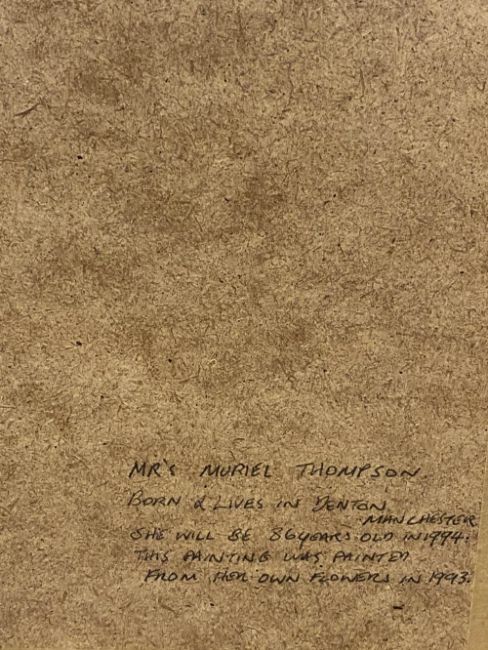 MR'S MURIEL THOMPSON.
BORN & LIVES IN DENTON
MANCHESTER
SHE WILL BE 86 YEARS OLD IN 1994.
THIS PAINTING WAS PAINTED
FROM HER OWN FLOWERS IN 1993.